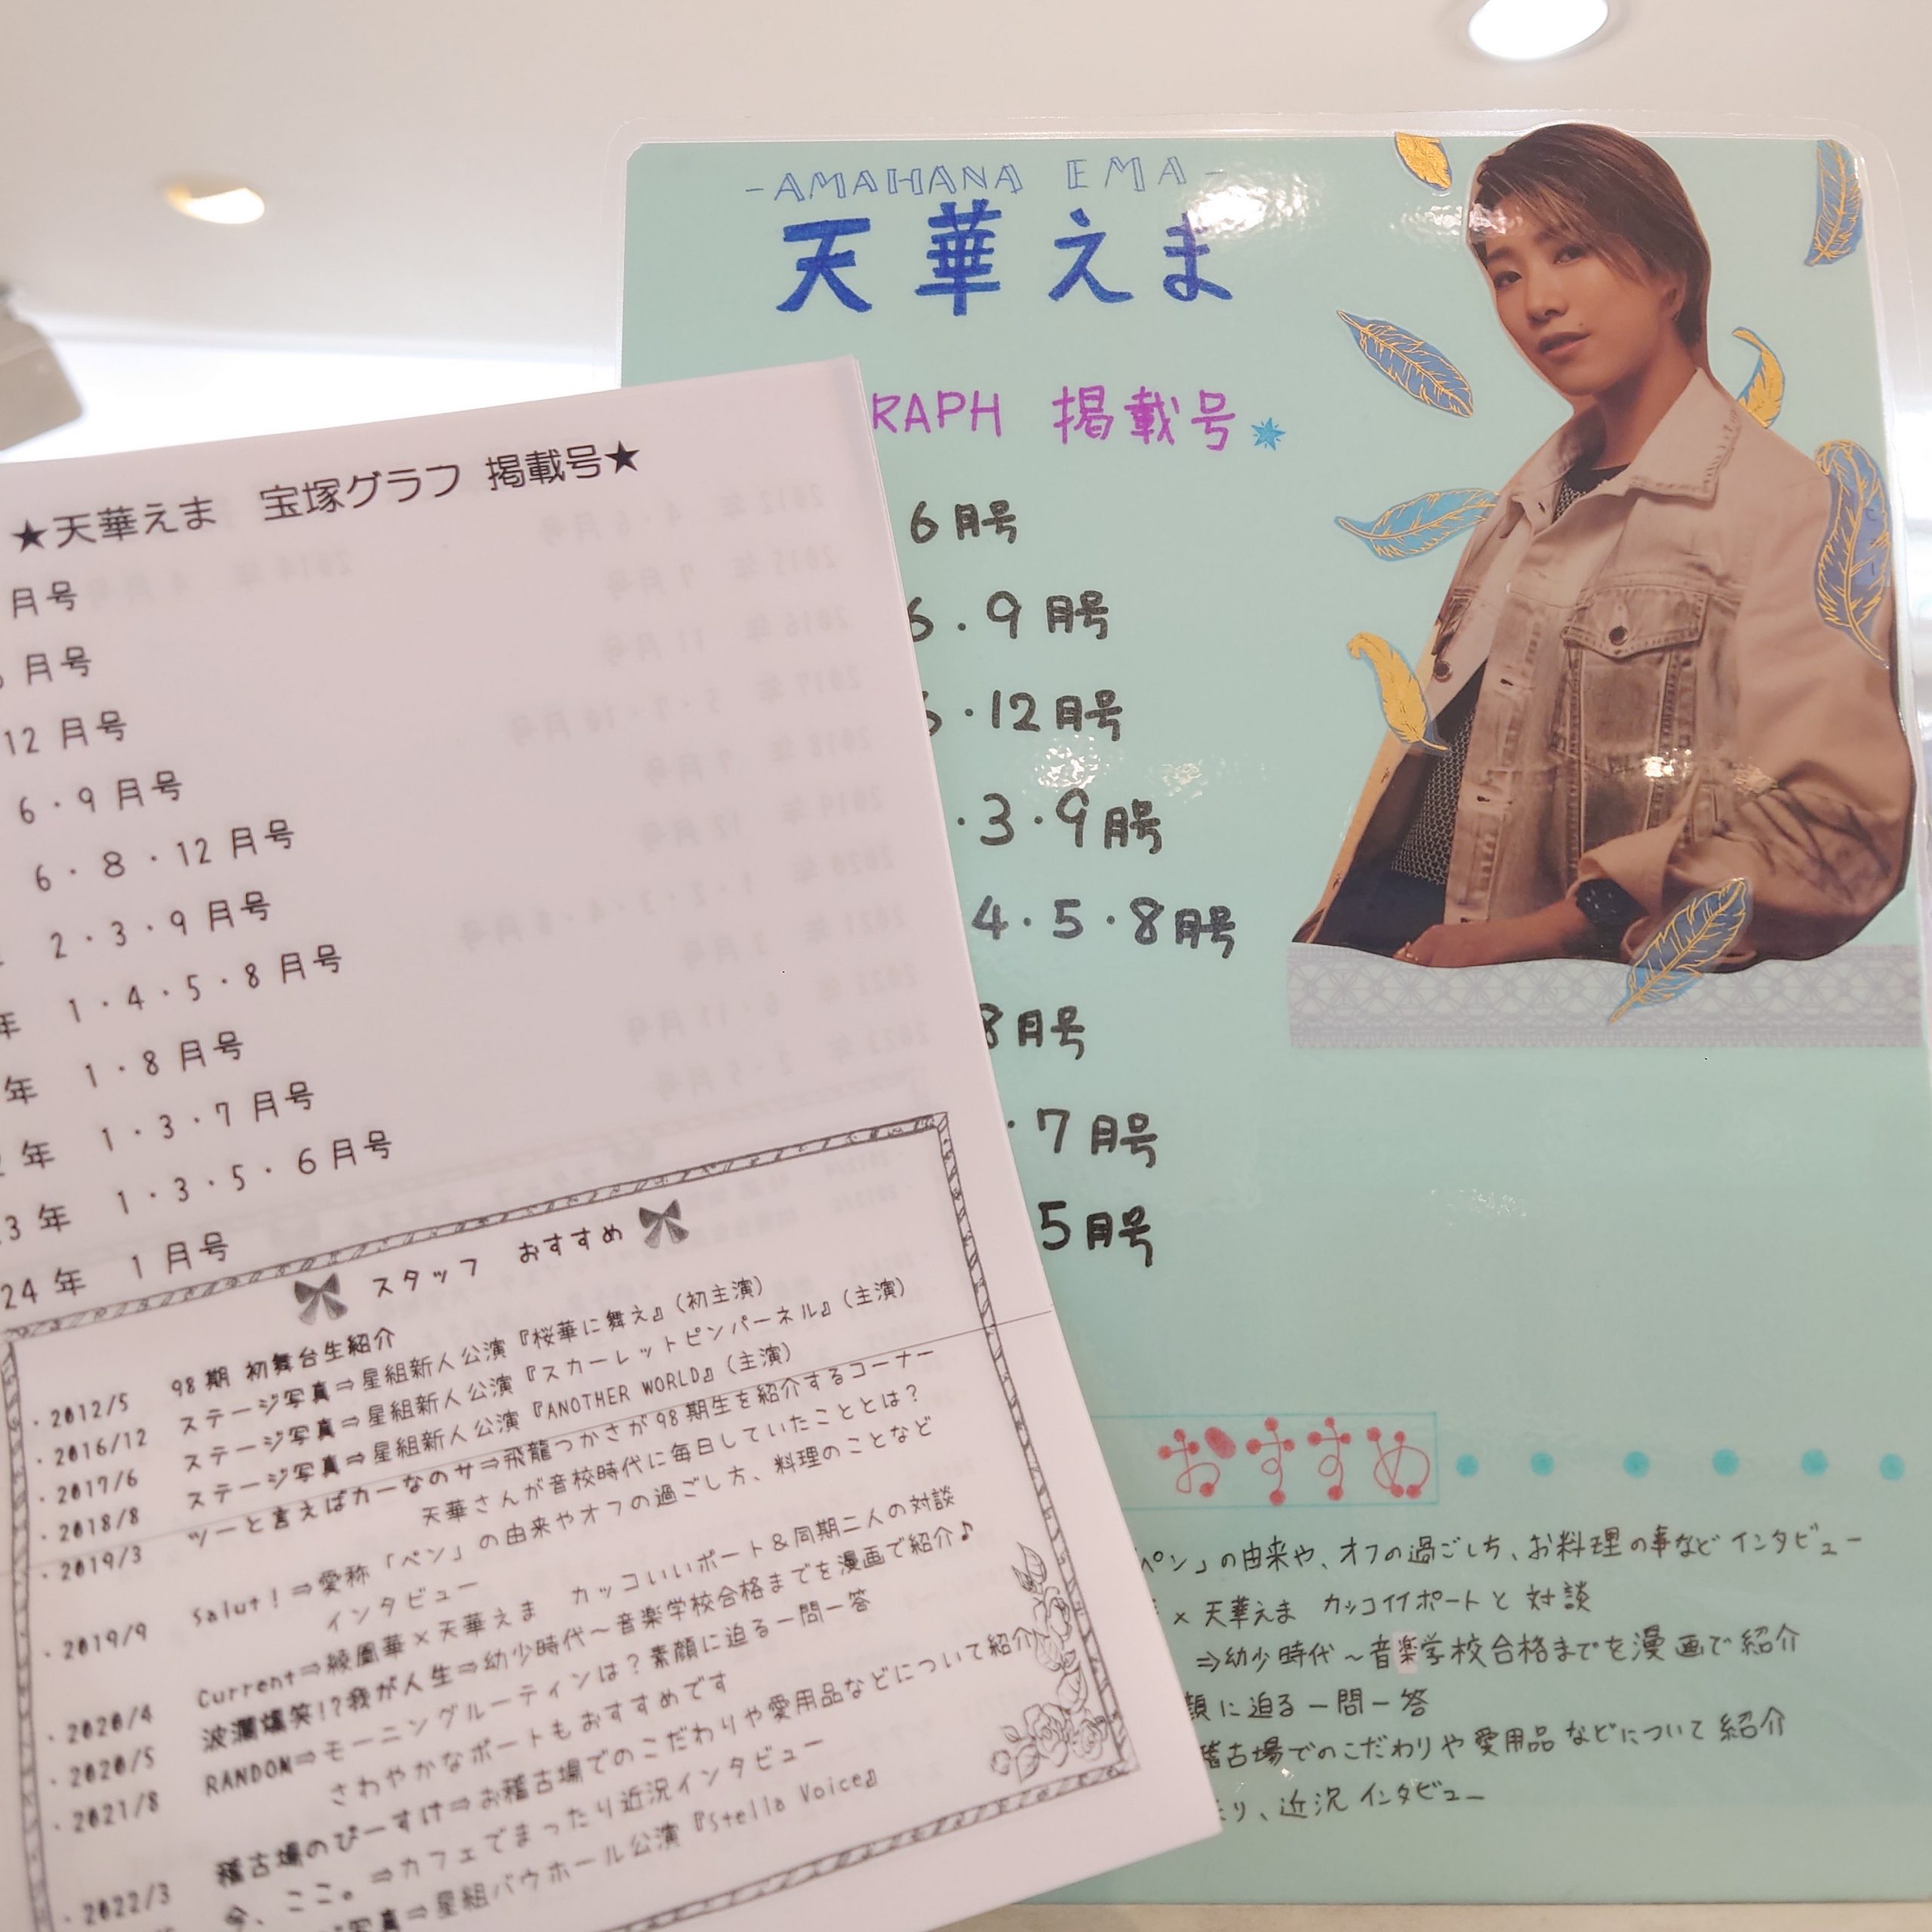 -AMAHANA EMA-
天華えま
RAPH 掲載号
6月号
6・9月号
・12月号
・3・9月号
4・5・8月号
8月号
・7月号
5月号
おすすめ
ペン」の由来や、オフの過ごし方、お料理の事など インタビュー
× 天華えま カッコイイポートと対談
⇒幼少時代～音楽学校合格までを漫画で紹介
顔に迫る一問一答
稽古場でのこだわりや愛用品などについて紹介
り、近況インタビュー
★天華えま 宝塚グラフ 掲載号★
月号
月号
12月号
6・9月号
6・8・12月号
2・3・9月号
年 1・4・5・8月号
年 1・8月号
年 1・3・7月号
3年 1・3・5・6月号
24年 1月号
スタッフ おすすめ
・2012/5 98期 初舞台生紹介
・2016/12 ステージ写真⇒星組新人公演『桜華に舞え』(初主演)
・2017/6 ステージ写真⇒星組新人公演『スカーレットピンパーネル』(主演)
・2018/8 ステージ写真⇒星組新人公演『ANOTHER WORLD』(主演)
・2019/3 ツーと言えばカーなのサ⇒飛龍つかさが98期生を紹介するコーナー
天華さんが音校時代に毎日していたこととは？
・2019/9 Salut！⇒愛称「ペン」の由来やオフの過ごし方、料理のことなど
インタビュー
・2020/4 Current⇒綾凰華×天華えま カッコいいポート＆同期二人の対談
・2020/5 波瀾爆笑！？我が人生⇒幼少時代～音楽学校合格までを漫画で紹介♪
・2021/8 RANDOM⇒モーニングルーティンは？素顔に迫る一問一答
さわやかなポートもおすすめです
・2022/3 稽古場のぴーすけ⇒お稽古場でのこだわりや愛用品などについて紹介
今、ここ。⇒カフェでまったり近況インタビュー
写真⇒星組バウホール公演『Stella Voice』